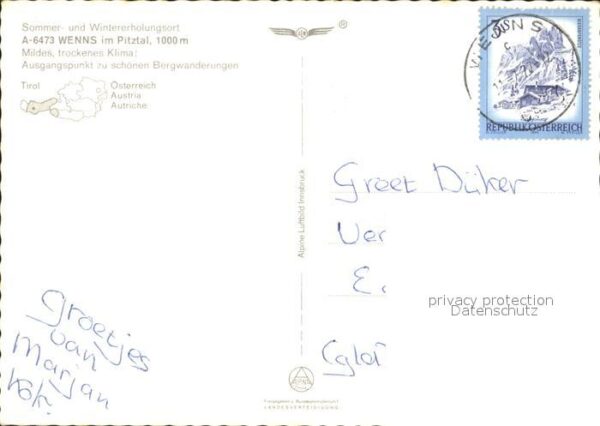 Sommer- und Wintererholungsort
A-6473 WENNS im Pitztal, 1000 m
Mildes, trockenes Klima;
Ausgangspunkt zu schönen Bergwanderungen
Tirol
Österreich
Austria
Autriche
®
WENNS
REPUBLIK ÖSTERREICH
Alpine Luftbild Innsbruck
Greet Düker
Ver
E.
privacy protection
Datenschutz
Groetjes
van
Marjan
LANDESVERTEIDIGUNG